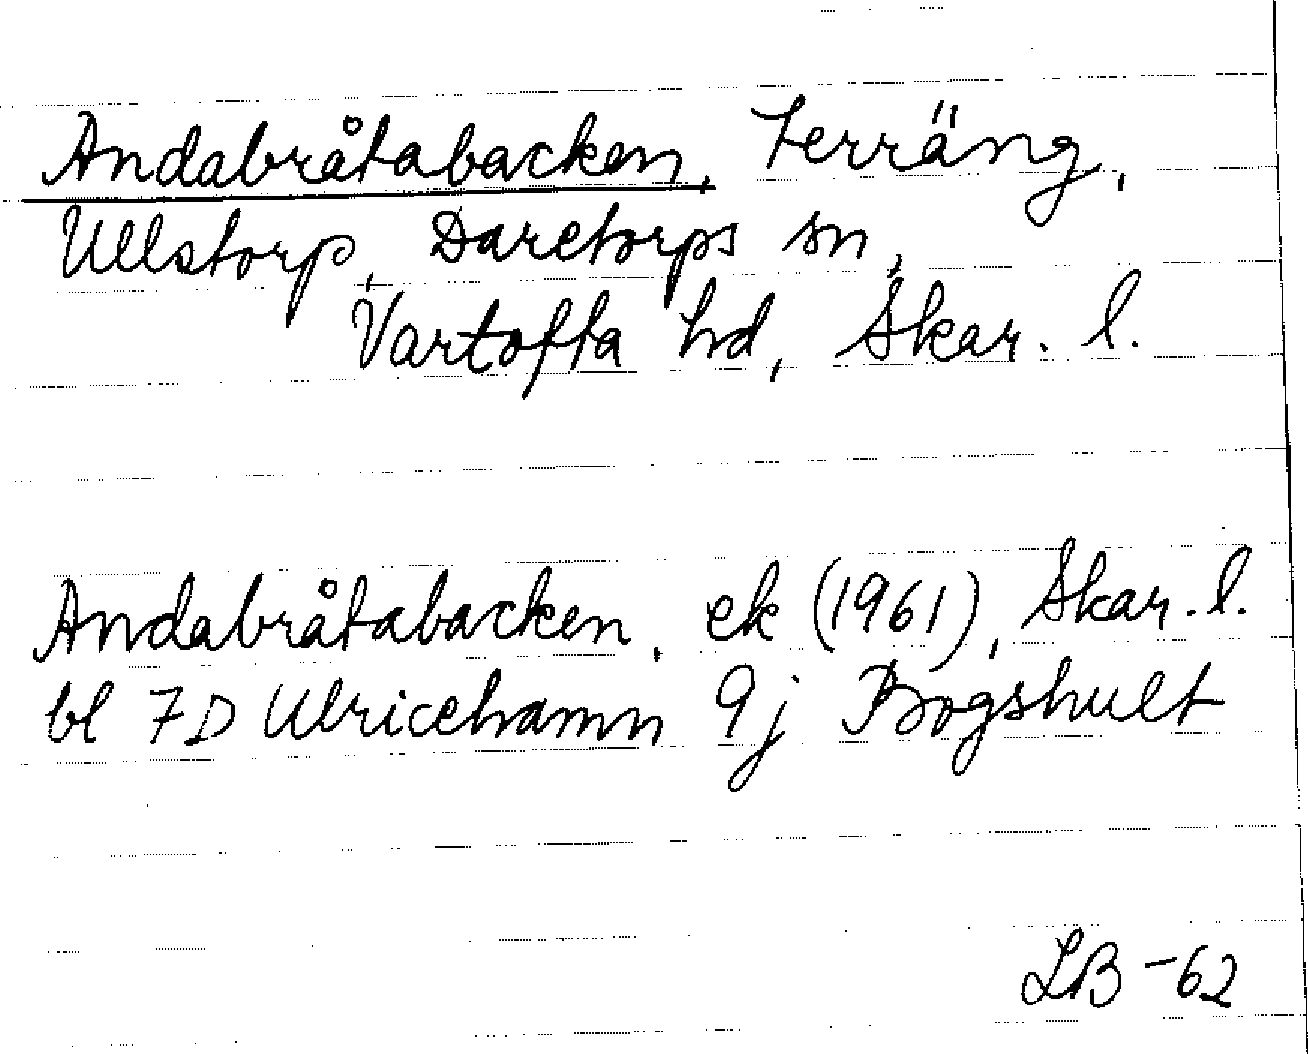 Andabråtabacken, Terräng,
Ullstorp, Daretorps sn,
Vartofta hd, Skar. l.
Andabråtabacken, ek (1961), Skar. l.
bl 7D Ulricehamn 9j Bogshult
LB -62